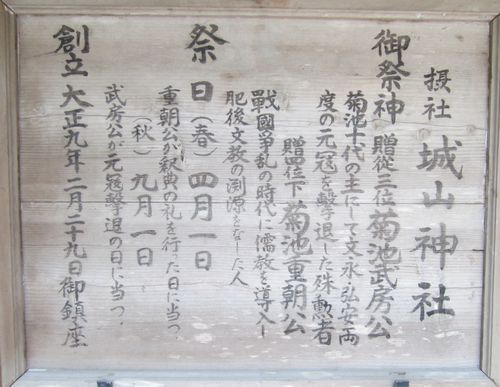 摂社 城山神社
御祭神 贈従三位菊池武房公
菊池十代の主にして文永、弘安両
度の元寇を撃退した殊勲者
贈四位下 菊池重朝公
戰國争乱の時代に儒教を導入し
肥後文教の渕源をなした人
祭日(春)四月一日
重朝公が釈典の礼を行った日に当つ、
(秋)九月一日
武房公が元寇撃退の日に当つ、
創立 大正九年二月二十九日御鎮座